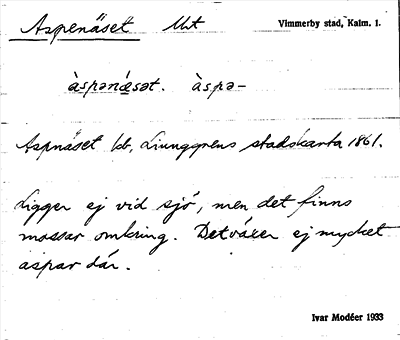 Aspenäset Ukt Vimmerby stad, Kalm. l.
àspənä́sət. àspə–
Aspnäset kb, Ljunggrens stadskarta 1861.
Ligger ej vid sjö, men det finns
mossar omkring. Det växer ej mycket
aspar där.
Ivar Modéer 1933